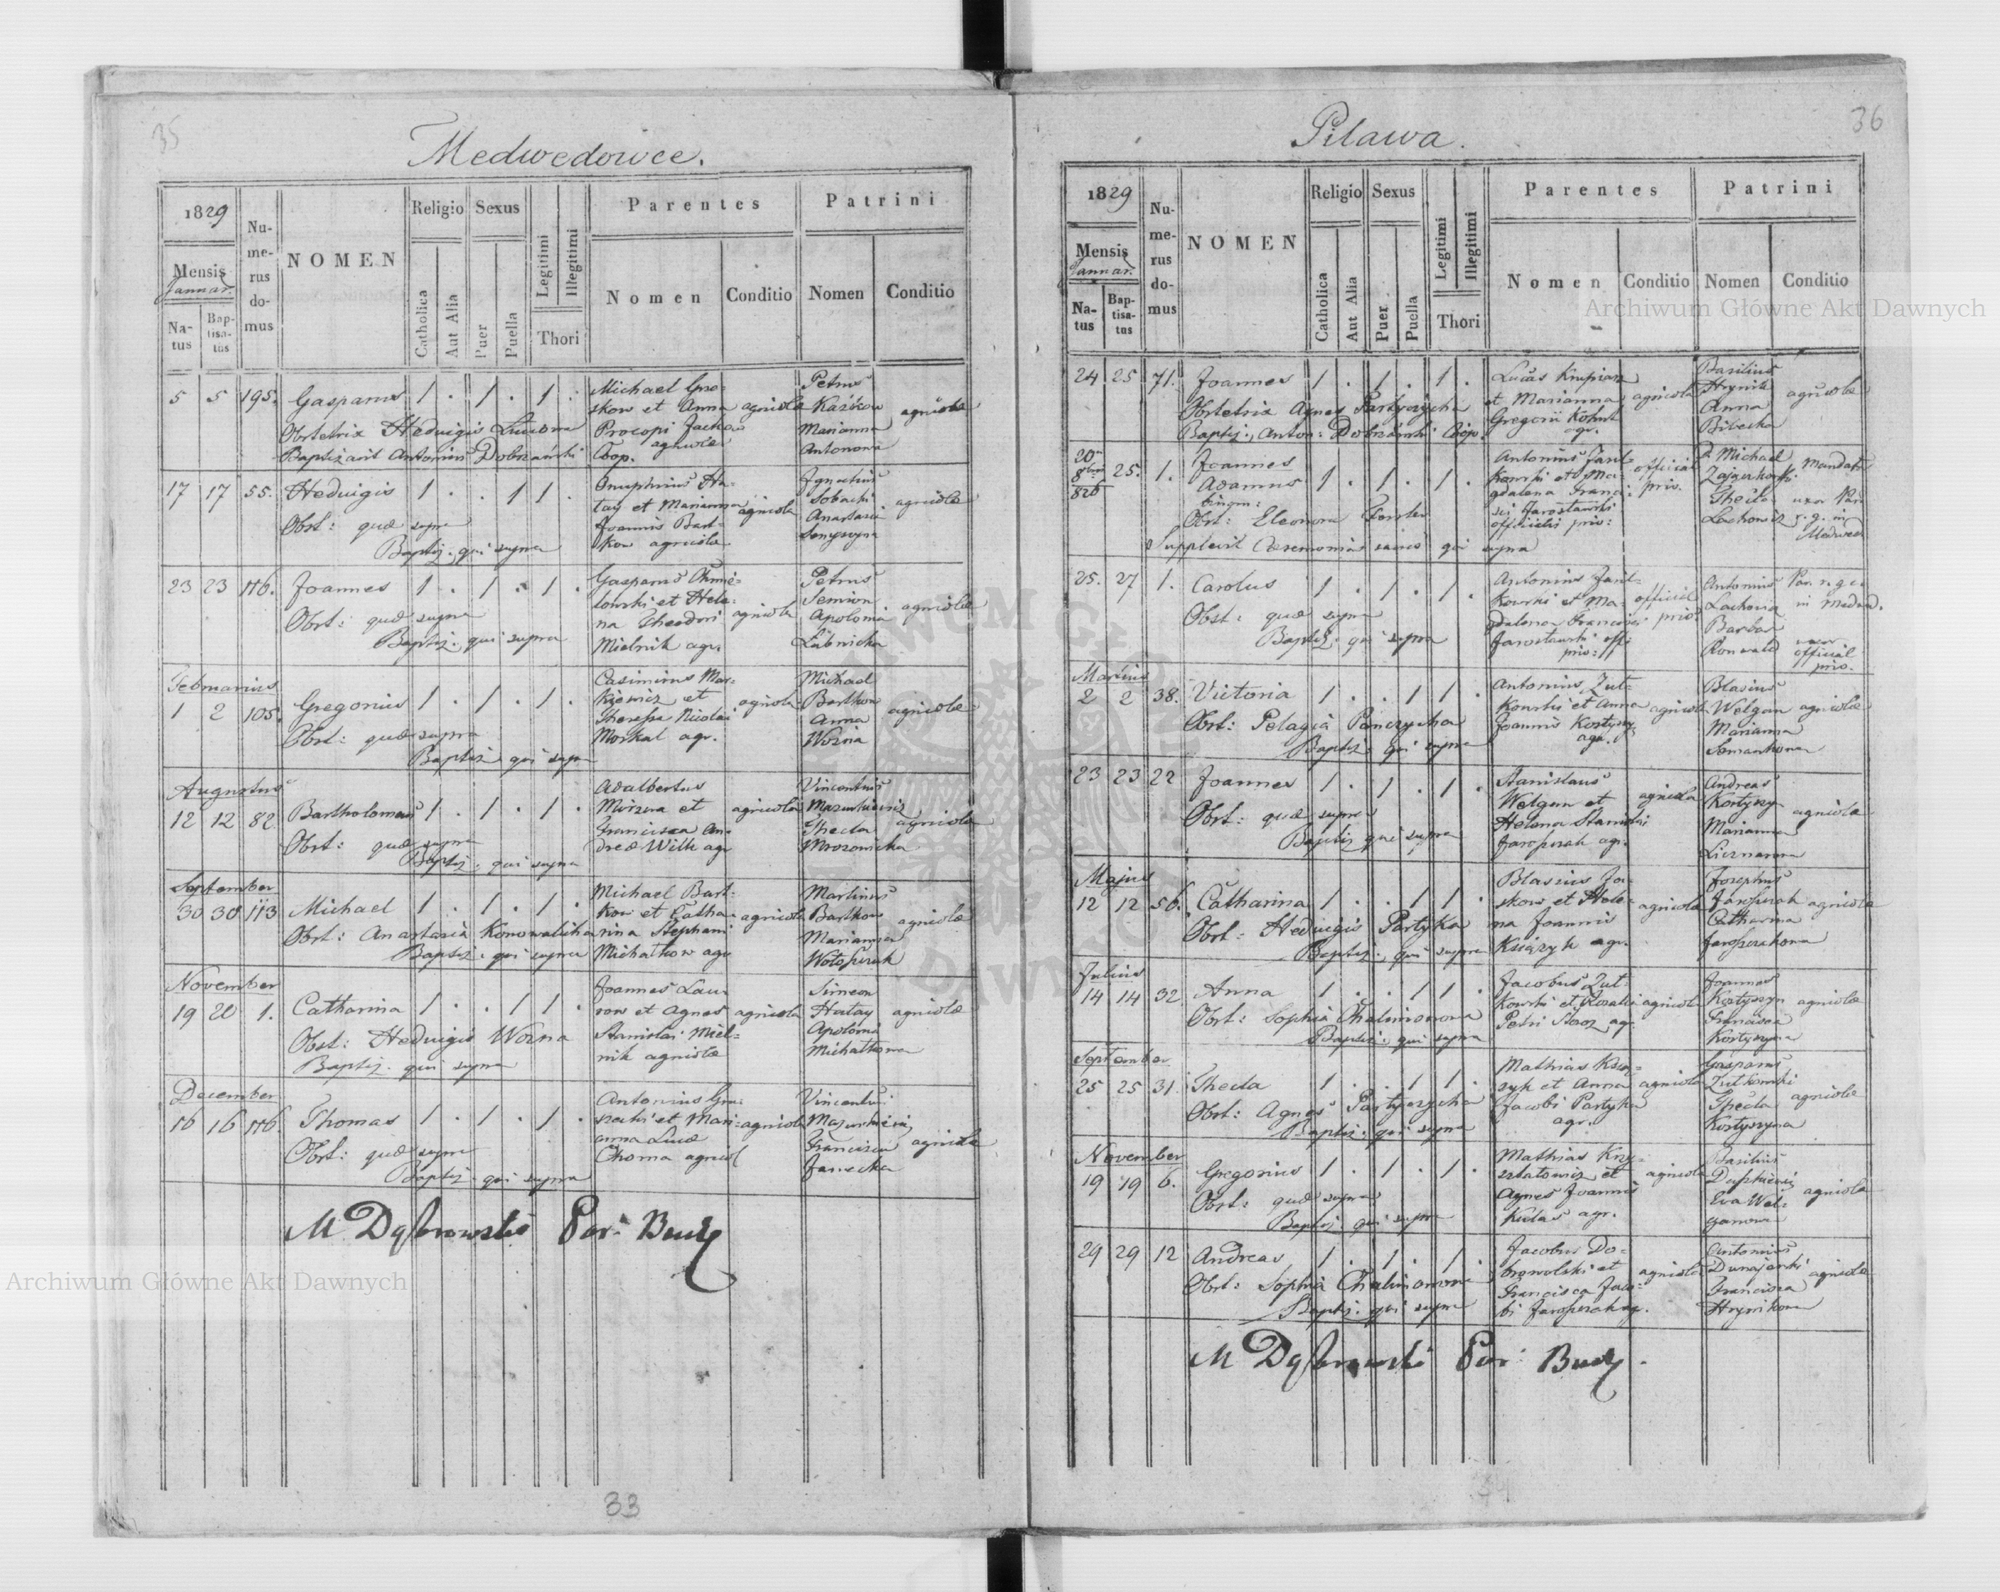 35
Medwedowce.
1829
Mensis
Januar.
Natus
Baptisatus
Numerus domus
NOMEN
Religio
Catholica
Aut Alia
Sexus
Puer
Puella
Legitimi
Illegitimi
Thori
Parentes
Nomen
Conditio
Patrini
Nomen
Conditio
5 5 195. Gasparus 1 . 1 . 1 .
Obstetrix Hedvigis
Baptizavit Antonius Dobrzański Coop.
Michael Gro-
skow et Anna
Procopi
agricolae
agricola
Petrus
Kaśkow
Marianna
Antonowa
agricolae
17 17 55. Hedvigis 1 . . 1 1 .
Obst: quae supra
Baptiz. qui supra
Onuphrius Ha-
lay et Marianna
Joannis Bart-
kow agricolae
agricola
Ignatius
Sobacki
Anastasia
agricolae
23 23 116. Joannes 1 . 1 . 1 .
Obst: quae supra
Baptiz. qui supra
Gasparus Chmie-
lowski et Hele-
na Theodori
Mielnik agr.
agricola
Petrus
Semion
Apolonia
Lubnicka
agricolae
Februarius
1 2 105. Gregorius 1 . 1 . 1 .
Obst: quae supra
Baptiz. qui supra
Casimirus Mac-
kiewicz et
Theresa Nicolai
Moskal agr.
agricola
Michael
Bartkow
Anna
Wozna
agricolae
Augustus
12 12 82 Bartholomaeus 1 . 1 . 1 .
Obst: quae supra
Baptiz: qui supra
Adalbertus
et
Francisca An-
dreae Wilk agr
agricola
Vincentius
Mazurkiewicz
Thecla
Mrozowicka
agricolae
September
30 30 113 Michael 1 . 1 . 1 .
Obst: Anastasia Konowalicha
Baptiz: qui supra
Michael Bart-
kow et Catha-
rina Stephani
Michatkow agr
agricola
Martinus
Bartkow
Marianna
Woloszczak
agricolae
November
19 20 1. Catharina 1 . . 1 1 .
Obst: Hedvigis Wozna
Baptiz. qui supra
Joannes Lau-
row et Agnes
Stanislai Miel-
nik agricolae
agricola
Simeon
Halay
Apolonia
Michatkowa
agricolae
December
16 16 116. Thomas 1 . 1 . 1 .
Obst: quae supra
Baptiz. qui supra
Antonius
et Mari-
anna Lucae
Choma agricol
agricola
Vincentius
Mazurkiewicz
Francisca
Jarnecka
agricolae
M Dąbrowski Par: Bucz
33
36
Pilawa.
1829
Mensis
Januar.
Natus
Baptisatus
Numerus domus
NOMEN
Religio
Catholica
Aut Alia
Sexus
Puer
Puella
Legitimi
Illegitimi
Thori
Parentes
Nomen
Conditio
Patrini
Nomen
Conditio
24 25 71. Joannes 1 . 1 . 1 .
Obstetrix Agnes Partyczycha
Baptiz. Anton: Dobrzański Coop.
Lucas
et Marianna
Gregorii Kohut
agr.
agricola
Basilius
Hrynik
Anna
Bibecka
agricolae
20a 8bris 828 25. 1. Joannes
Adamus
binom:
1 . 1 . 1 .
Obst: Eleonora Fersler
Supplevit Ceremonias sacras qui supra
Antonius Jan-
kowski et Ma-
gdalena Franci-
sci Jarosławski
officialis priv:
official
priv.
P. Michael
Thecla
Lachowicz
Mandat.
uxor
in
Medwed.
25. 27 1. Carolus 1 . 1 . 1 .
Obst: quae supra
Baptiz: qui supra
Antonius Jan-
kowski et Ma-
gdalena Francisci
Jarosławski offi
priv:
official
priv:
Antonius
Lachowicz
Barbara
Ronwald
in Medwed.
uxor
official
priv.
Martius
2 2 38. Victoria 1 . . 1 1 .
Obst: Pelagia Panczycha
Baptiz: qui supra
Antonius Zut-
kowski et Anna
Joannis Kostyszyn
agr.
agricola
Blasius
Welgan
Marianna
agricolae
23 23 22 Joannes 1 . 1 . 1 .
Obst: quae supra
Baptiz qui supra
Stanislaus
Welgan et
Helena Stanislai
Jaroszczak agr.
agricola
Andreas
Kostyszyn
Marianna
agricolae
Majus
12 12 56. Catharina 1 . . 1 1 .
Obst: Hedvigis Partyka
Baptiz: qui supra
Blasius Ja-
skow et Hele-
na Joannis
Książyk agr.
agricola
Josephus
Jaroszczak
Catharina
Jaroszczakowa
agricolae
Julius
14 14 32 Anna 1 . . 1 1 .
Obst: Sophia Chalimonowa
Baptiz: qui supra
Jacobus Zut-
kowski et Rosalia
Petri agr.
agricola
Joannes
Kostyszyn
Francisca
Kostyszyna
agricolae
September
25 25 31. Thecla 1 . . 1 1 .
Obst: Agnes Partyczycha
Baptiz: qui supra
Mathias Ksią-
zyk et Anna
Jacobi Partyka
agr.
agricola
Gasparus
Zutkowski
Thecla
Kostyszyna
agricolae
November
19 19 6. Gregorius 1 . 1 . 1 .
Obst: quae supra
Baptiz qui supra
Mathias Krzy-
sztatowicz et
Agnes Joannis
Kulas agr.
agricola
Basilius
Eva Wel-
ganowa
agricolae
29 29 12 Andreas 1 . 1 . 1 .
Obst: Sophia Chalimonowa
Baptiz. qui supra
Jacobus Do-
browolski et
Francisca Jaco-
bi Jaroszczak agr.
agricola
Antonius
Dunajewski
Francisca
Hrynikowa
agricolae
M Dąbrowski Par: Bucz.
34
Archiwum Główne Akt Dawnych
Archiwum Główne Akt Dawnych